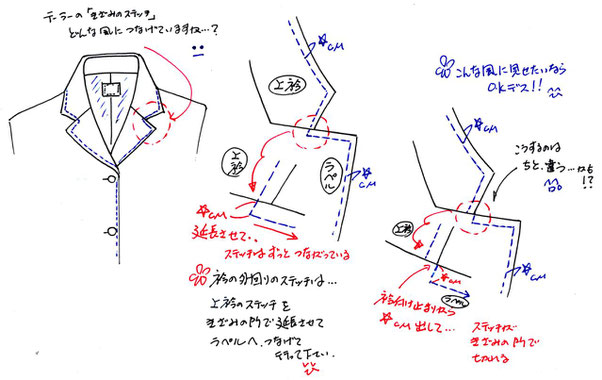 テーラーの「きざみのステッチ」
どんな風につなげていますね…?
☆cm
上衿
ラペル
☆cm
上衿
☆cm
延長させて..
ステッチはずっとつながっている
衿の外回りのステッチは…
上衿のステッチを
きざみの内で延長させて
ラペルへ、つなげて
行って下さい.
こんな風に見せたいなら
OKデス!!
☆cm
こうするのは
ちと、違う…
!?
上衿
☆cm
☆cm
ラペル
衿付け止まりから
☆cm出して…
ステッチが
きざみの内で
切れいる